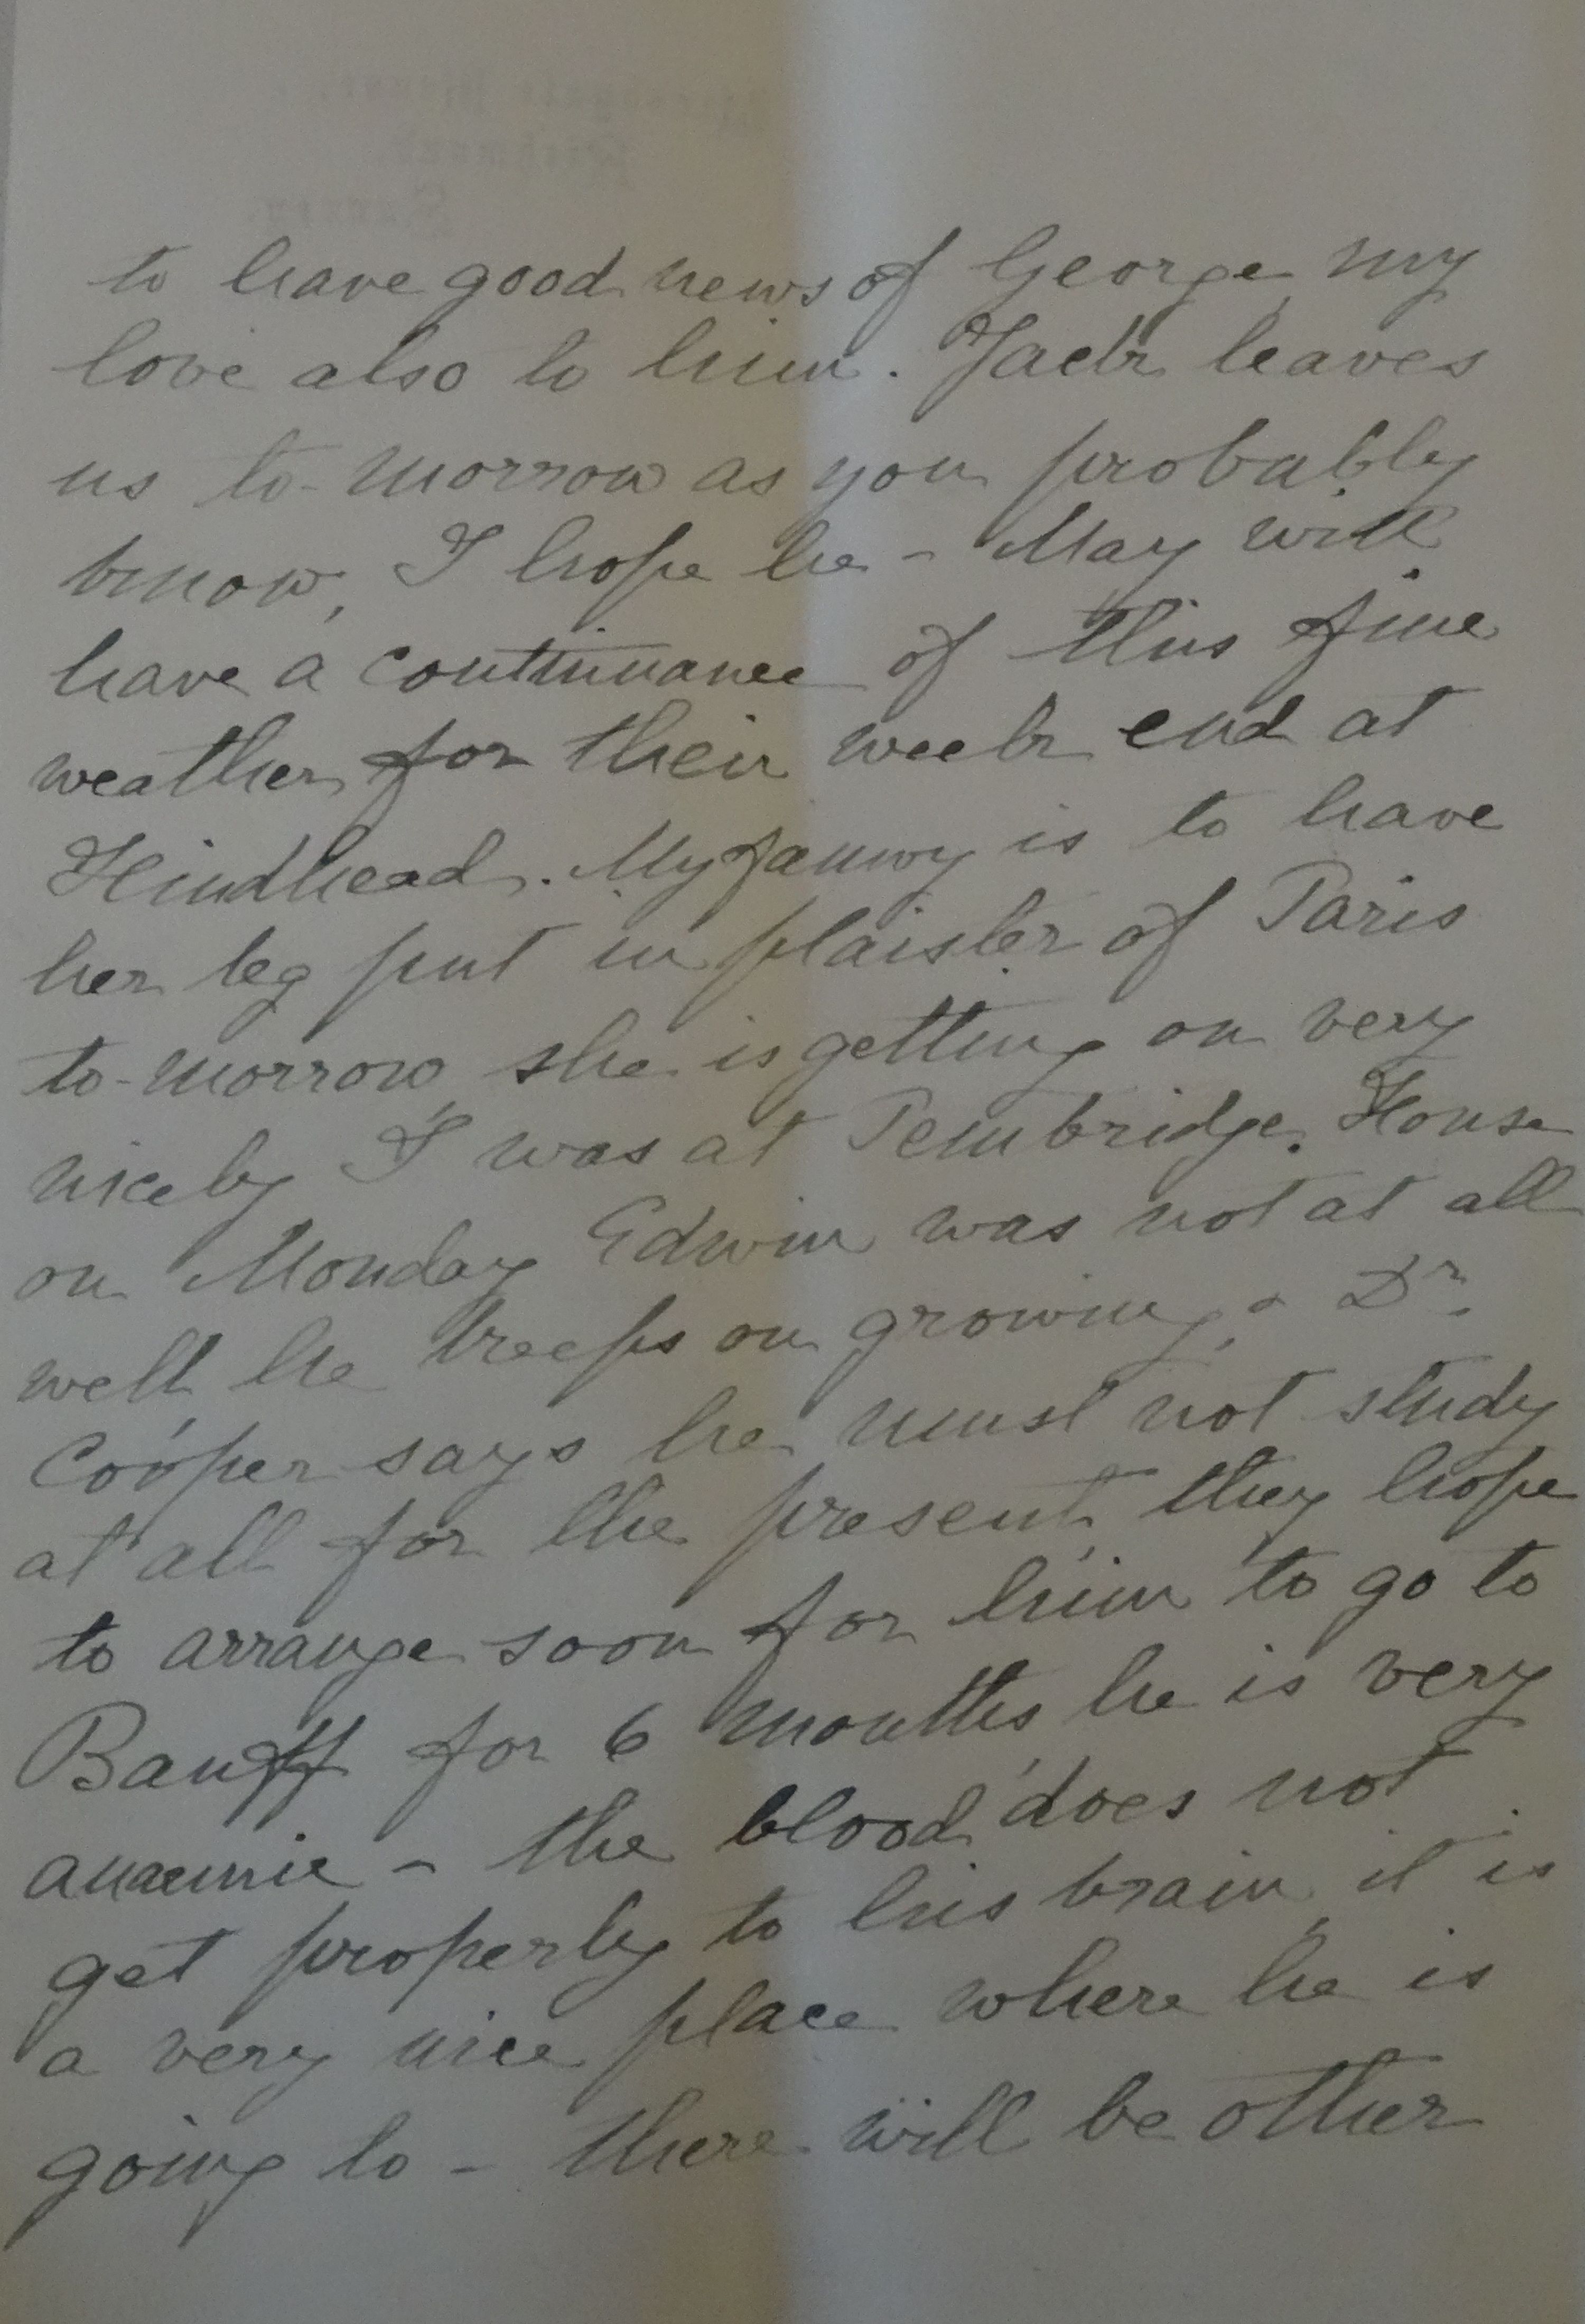 to have good news of George, my
love also to him. Jack leaves
us to-morrow as you probably
know, I hope he - May will
have a continuance of this fine
weather for their week end at
Hindhead. Myfanwy is to have
her leg put in plaister of Paris
to-morrow, she is getting on very
nicely I was at Pembridge House
on Monday Edwin was not at all
well, he keeps on growing, & Dr.
Cooper says he must not study
at all for the present, they hope
to arrange soon for him to go to
Banff for 6 months he is very
anaemic - the blood does not
get properly to his brain, it is
a very nice place where he is
going to - there will be other